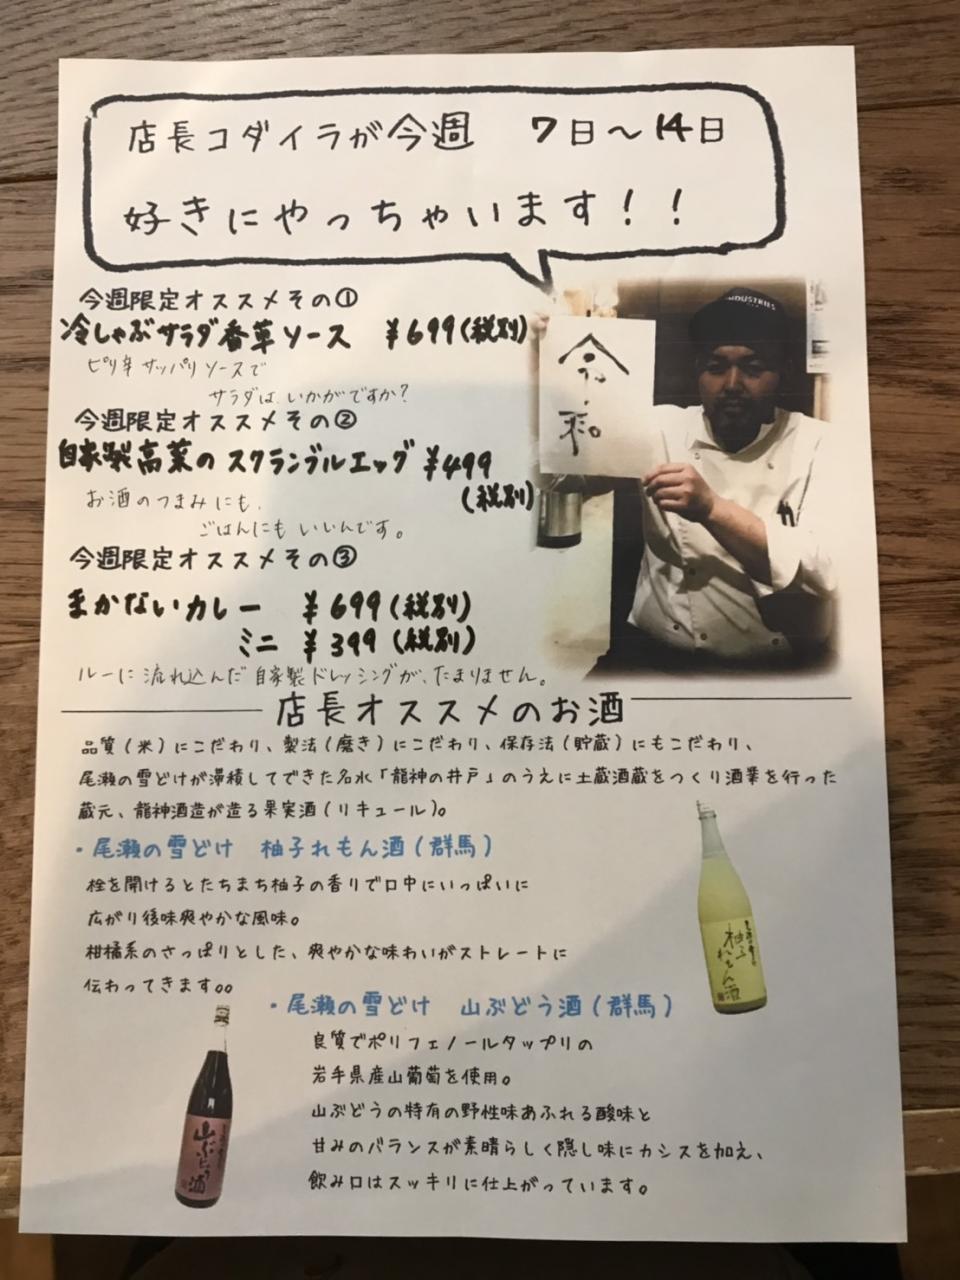 店長コダイラが今週　7日～14日
好きにやっちゃいます！！
今週限定オススメその①
冷しゃぶサラダ香草ソース　¥699(税別)
ピリ辛サッパリソースで
サラダは、いかがですか？
今週限定オススメその②
自家製高菜のスクランブルエッグ ¥499
(税別)
お酒のつまみにも、
ごはんにもいいんです。
今週限定オススメその③
まかないカレー　¥699(税別)
ミニ　¥399(税別)
ルーに流れ込んだ自家製ドレッシングが、たまりません。
INDUSTRIES
令和
店長オススメのお酒
品質(米)にこだわり、製法(磨き)にこだわり、保存法(貯蔵)にもこだわり、
尾瀬の雪どけが滞積してできた名水「龍神の井戸」のうえに土蔵酒蔵をつくり酒業を行った
蔵元、龍神酒造が造る果実酒(リキュール)。
・尾瀬の雪どけ　柚子れもん酒(群馬)
栓を開けるとたちまち柚子の香りで口中にいっぱいに
広がり後味爽やかな風味。
柑橘系のさっぱりとした、爽やかな味わいがストレートに
伝わってきます。。
柚子
れもん酒
・尾瀬の雪どけ　山ぶどう酒(群馬)
良質でポリフェノールタップリの
岩手県産山葡萄を使用。
山ぶどうの特有の野性味あふれる酸味と
甘みのバランスが素晴らしく隠し味にカシスを加え、
飲み口はスッキリに仕上がっています。
山ぶどう酒